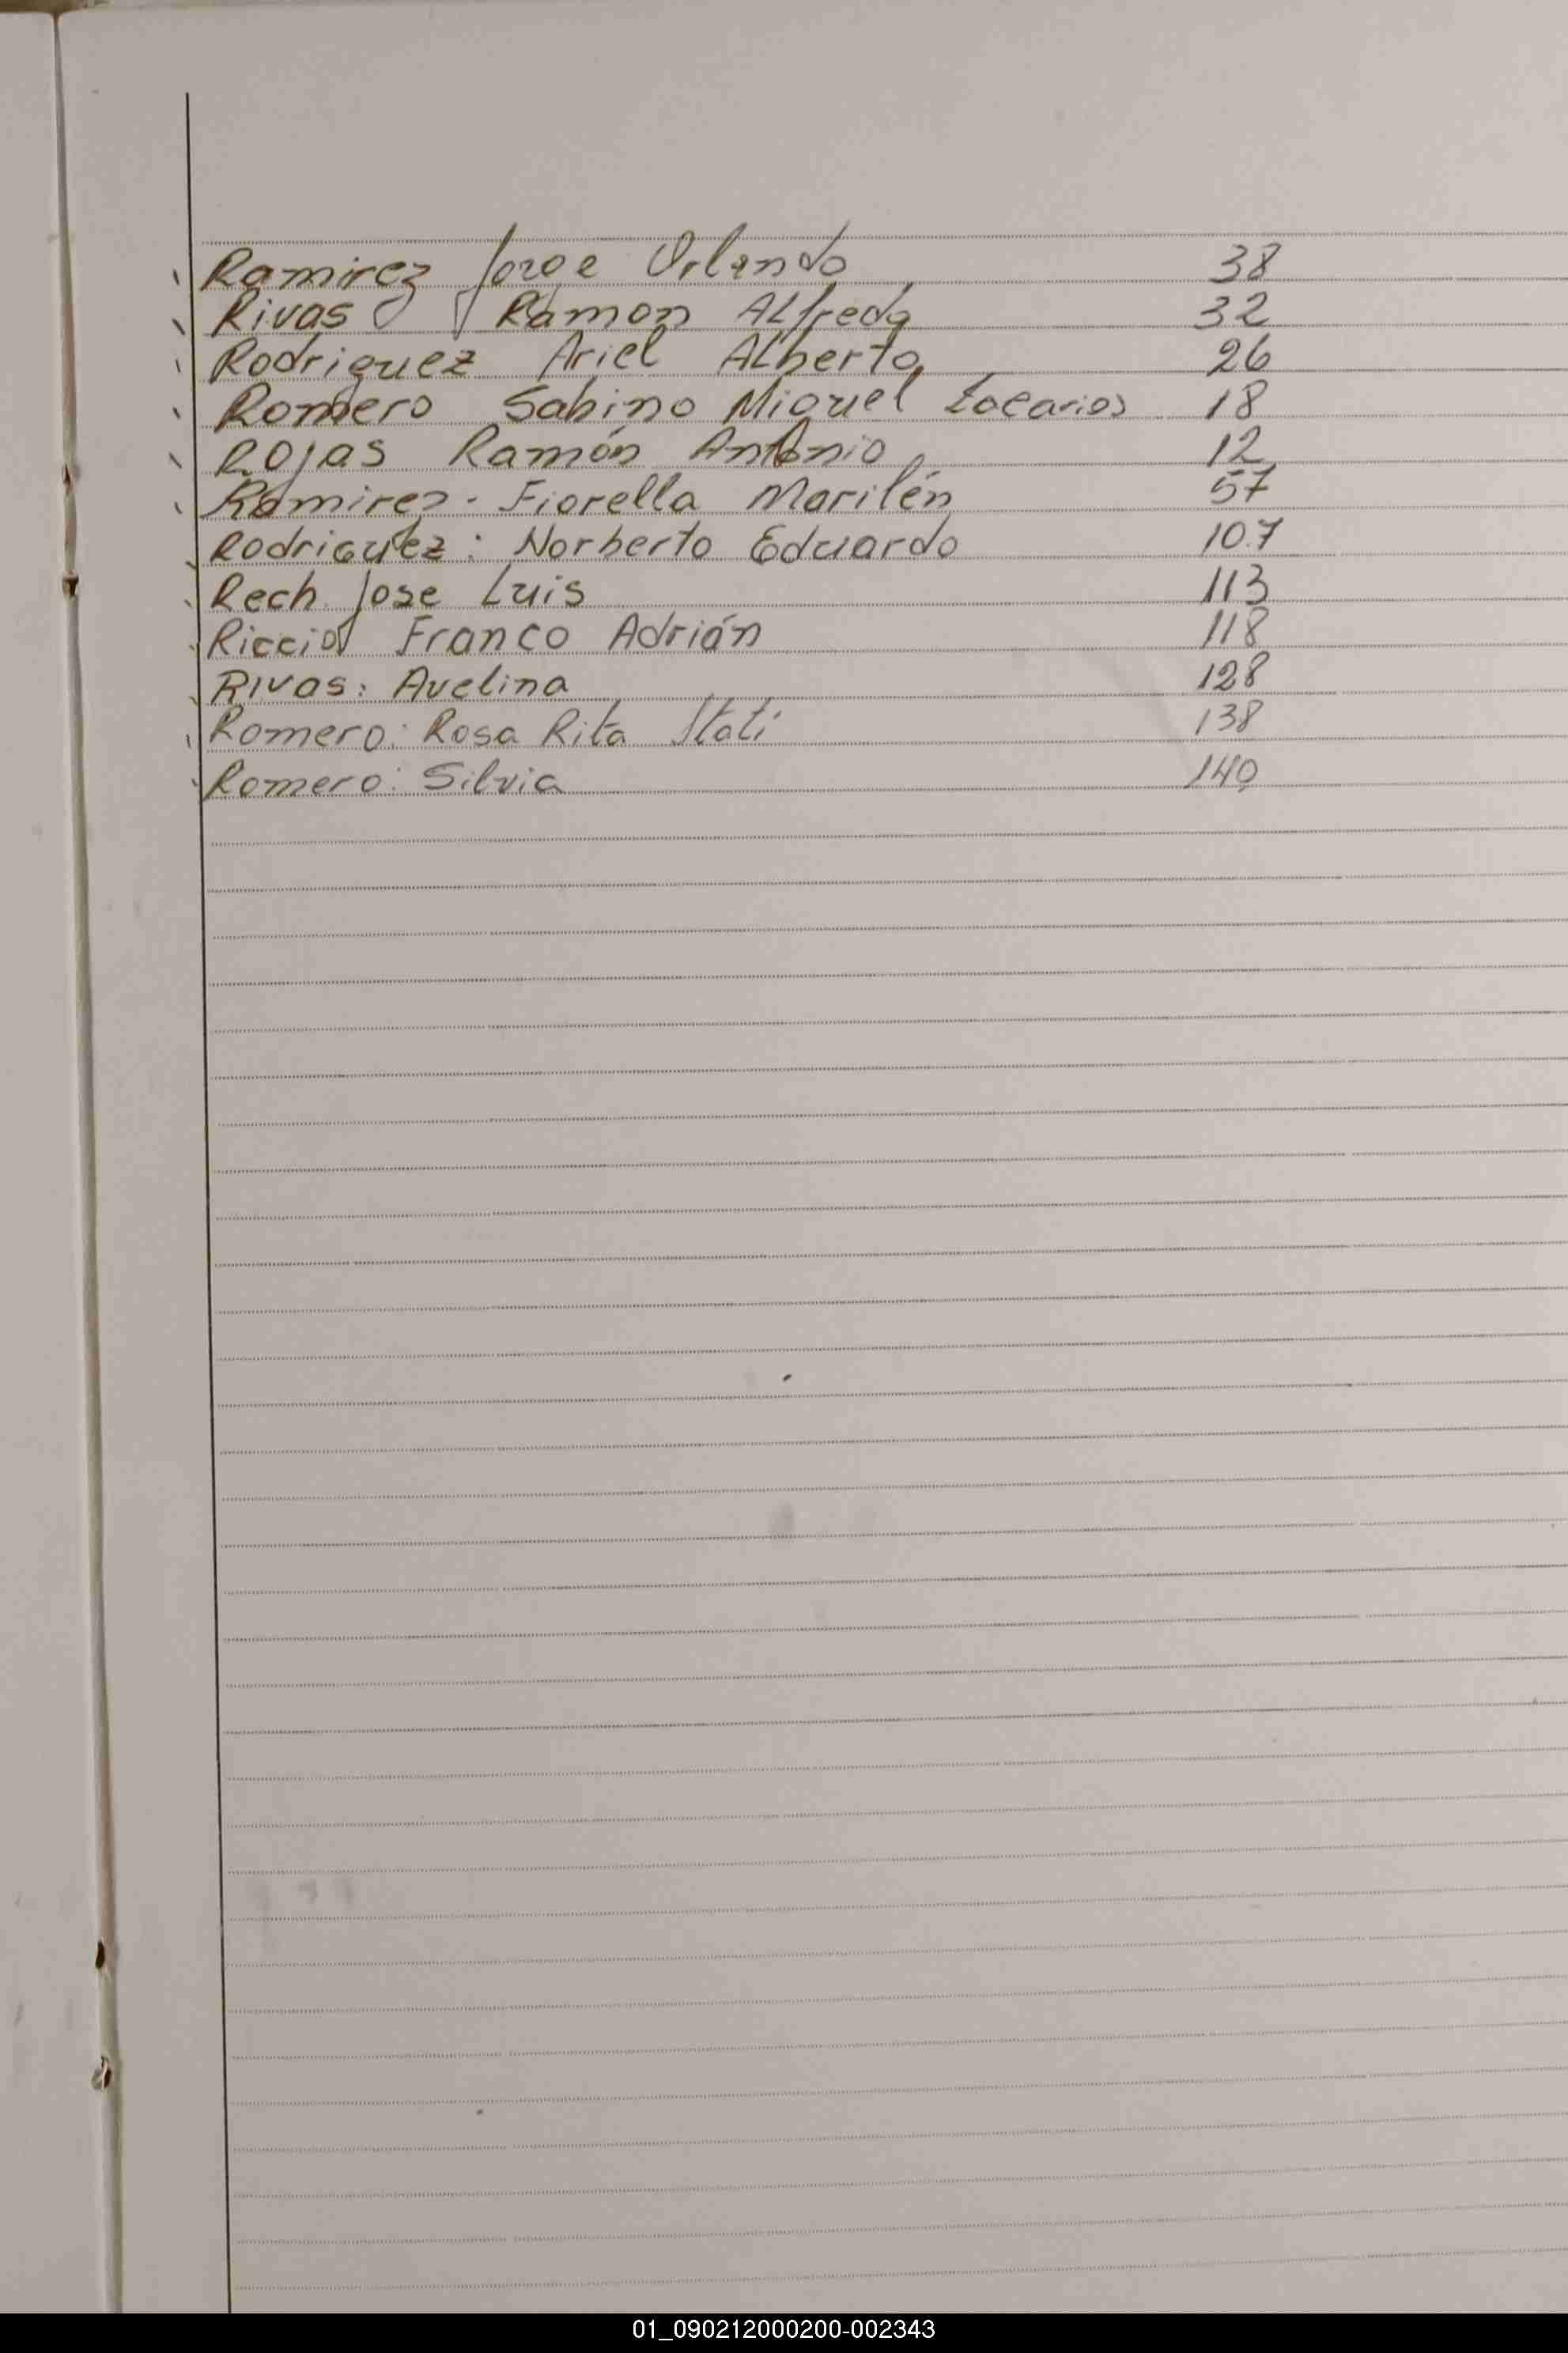 Ramirez Jorge Orlando 38
Rivas Ramon Alfredo 32
Rodriguez Ariel Alberto 26
Romero Sabino Miguel Zacarias 18
Rojas Ramón Antonio 12
Ramirez - Fiorella Marilén 57
Rodriguez: Norberto Eduardo 107
Rech Jose Luis 113
Riccio Franco Adrián 118
Rivas: Avelina 128
Romero: Rosa Rita Itati 138
Romero: Silvia 140
01_090212000200-002343